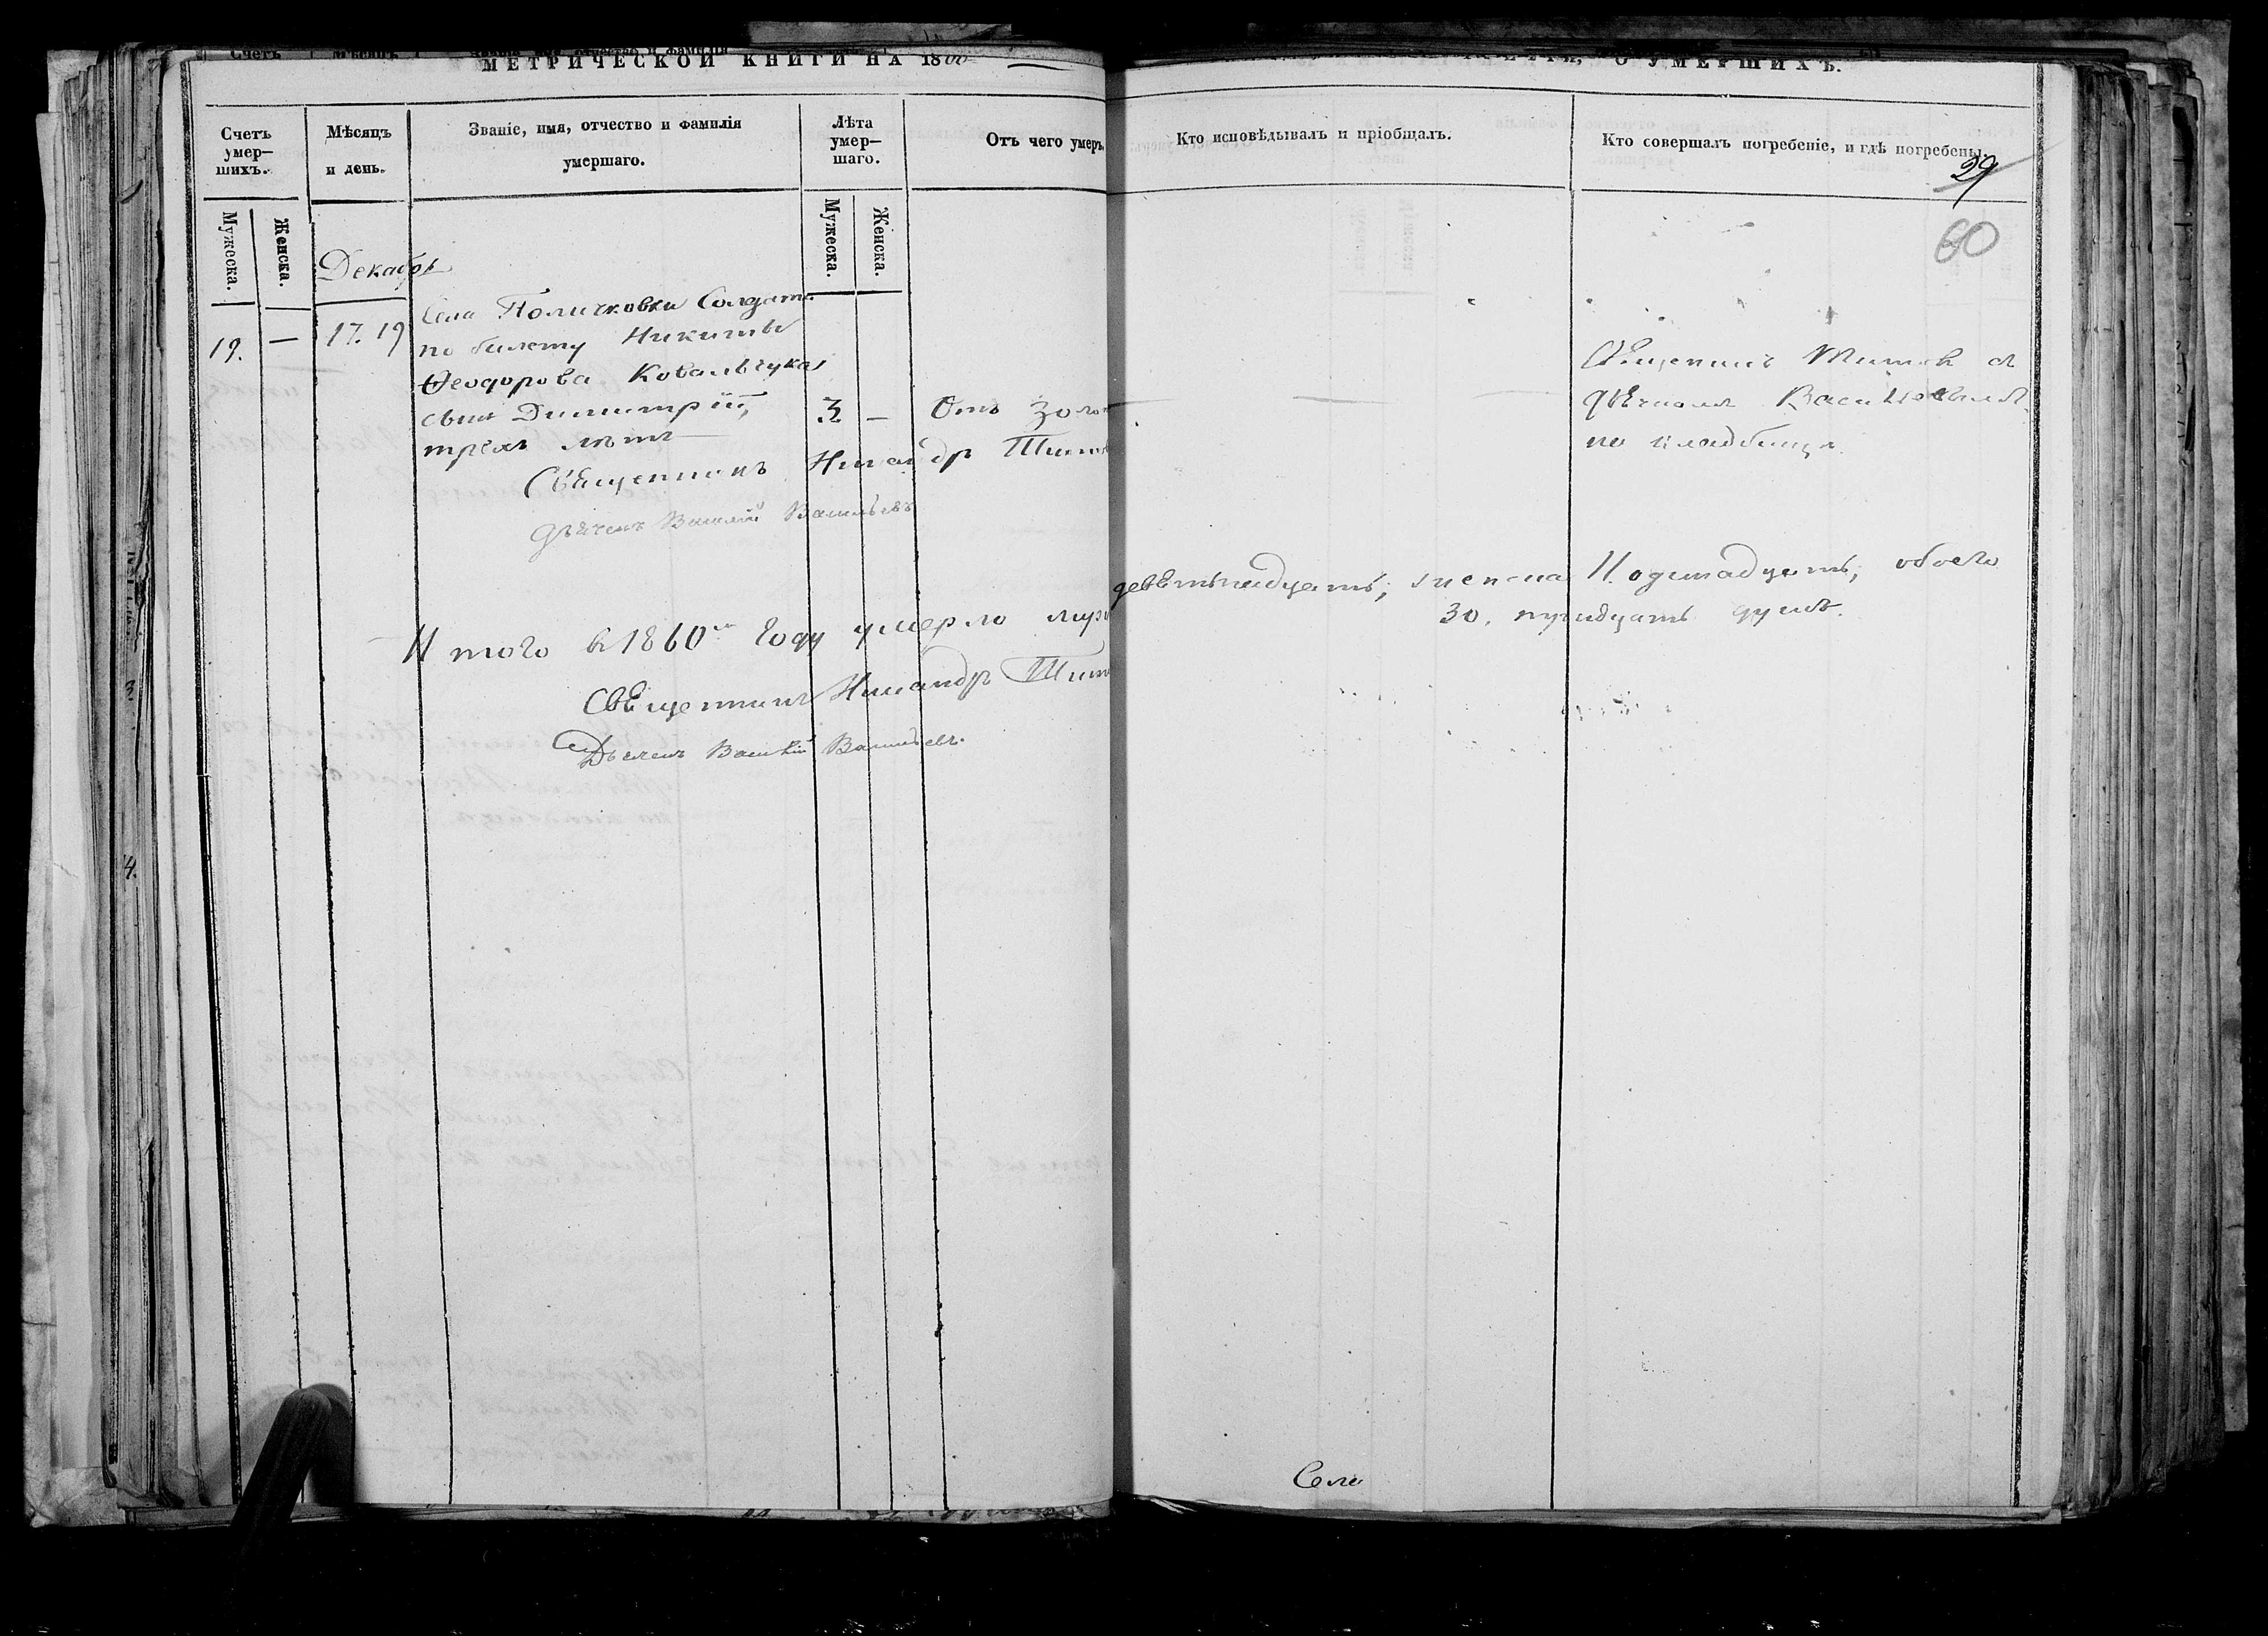 МЕТРИЧЕСКОЙ КНИГИ НА 1860
О УМЕРШИХЪ.
Счетъ умер—шихъ.
Мѣсяцъ и день.
Званіе, имя, отчество и фамилія умершаго.
Лѣта умер—шаго.
Отъ чего умеръ.
Кто исповѣдывалъ и пріобщалъ.
Кто совершалъ погребеніе, и гдѣ погребены.
29
60
Мужеска.
Женска.
Мужеска.
Женска.
Декабрь
19. — 17. 19
Села Поличковки Солдата
по билету Никиты
Ѳеодорова Ковальчука
сынъ Димитрій,
трехъ лѣтъ
3 — Отъ золот
Священникъ Титовъ съ
дьячкомъ Васильевымъ
на кладбищѣ.
Священникъ Никандръ Титов
Дьячекъ Василій Васильевъ
Итого въ 1860мъ году умерло муж
девятнадцать, женска 11. одинадцать, обоего
30. тридцать душъ.
Священникъ Никандръ Тит
Дьячекъ Василій Васильевъ.
Села